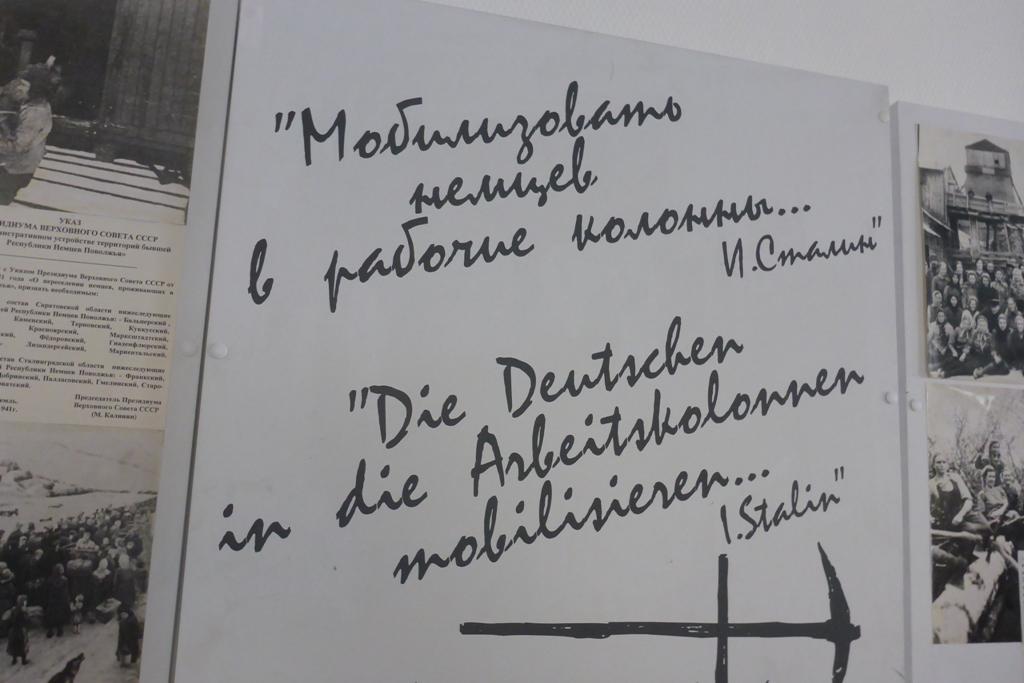 "Мобилизовать
немцев
в рабочие колонны...
И.Сталин"
"Die Deutschen
in die Arbeitskolonnen
mobilisieren...
I.Stalin"
УКАЗ
ИДИУМА ВЕРХОВНОГО СОВЕТА СССР
инистративном устройстве территорий бывшей
Республики Немцев Поволжья»
с Указом Президиума Верховного Совета СССР от
1 года «О переселении немцев, проживающих в
признать необходимым:
состав Саратовской области нижеследующие
Республики Немцев Поволжья: - Бальцерский,
Каменский, Терновский, Куккусский,
Красноярский, Марксштадтский,
Фёдоровский, Гнаденфлюрский,
Лизандергейский, Мариентальский,
став Сталинградской области нижеследующие
Республики Немцев Поволжья: - Франкский,
Добринский, Палласовский, Гмелинский, Старо-
Председатель Президиума
Верховного Совета СССР
1941г.
(М. Калинин)